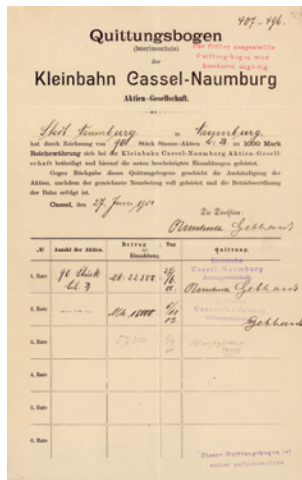 407-496.
Quittungsbogen
(Interimsschein)
der
Kleinbahn Cassel-Naumburg
Aktien-Gesellschaft.
Der früher ausgestellte
Quittungsbogen wird
hierdurch ungültig
Stadt Naumburg in Naumburg
hat durch Zeichnung von 90 Stück Stamm-Aktien Lit. B zu 1000 Mark
Reichswährung sich bei der Kleinbahn Cassel-Naumburg Aktien-Gesell-
schaft beteiligt und hierauf die unten bescheinigten Einzahlungen geleistet.
Gegen Rückgabe dieses Quittungsbogens geschieht die Aushändigung der
Aktien, nachdem der gezeichnete Nennbetrag voll geleistet und die Betriebseröffnung
der Bahn erfolgt ist.
Cassel, den 27. Juni 1901
Die Direktion:
Gebhardt
№ Anzahl der Aktien. Betrag der Einzahlung. Tag Quittung.
1. Rate 90 Stück Lit. B Mk. 22500 27/6. 01. Kleinbahn Cassel-Naumburg Aktiengesellschaft Gebhardt
2. Rate Mk. 18000 Cassel-Naumburg Aktiengesellschaft Gebhardt
3. Rate
4. Rate
5. Rate
6. Rate
Dieser Quittungsbogen ist
sicher aufzubewahren